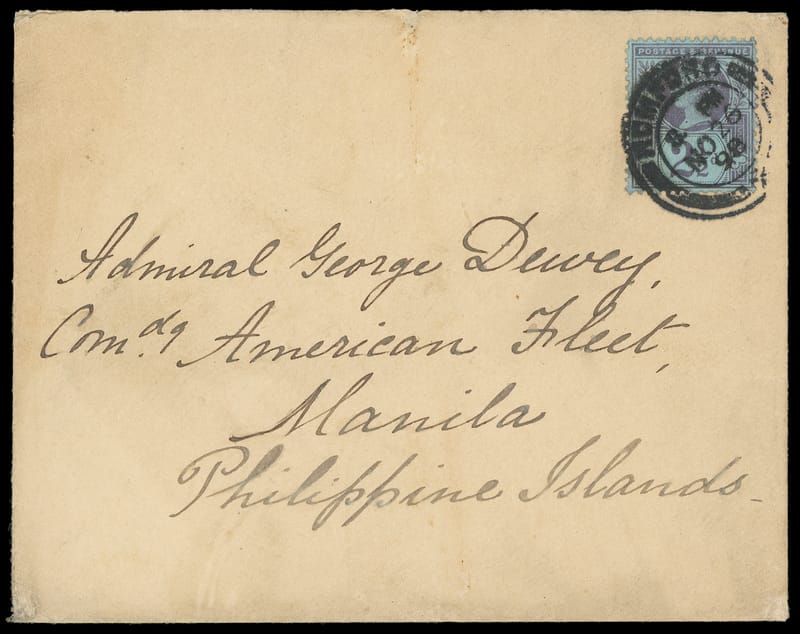 POSTAGE & REVENUE
NO 2
98
Admiral George Dewey,
Comdg. American Fleet,
Manila
Philippine Islands